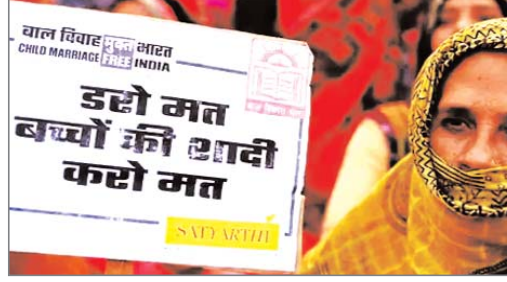 बाल विवाह मुक्त भारत
CHILD MARRIAGE FREE INDIA
डरो मत
बच्चों की शादी
करो मत
SATYARTHI